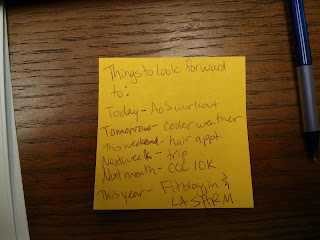 Things to look forward
to:
Today - AoS workout
Tomorrow - cooler weather
This weekend - hair appt
Next week - trip
Next month - CCL 10K
This year - Fitbloggin &
LA SPRM